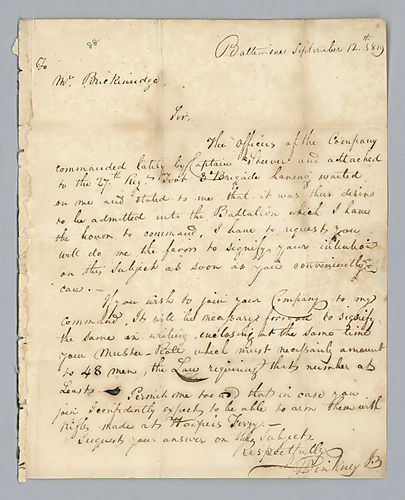 88
Baltimore September 12th 1819
To
Mr. Brickenridge,
Sir,
The Officers of the Company
commanded lately by Captain and attached
to the 27th Regt. Foot 3d Brigade having waited
on me and stated to me that it was their desire
to be admitted into the Battalion which I have
the honor to command, I have to request you
will do me the favor to signify your intention
on this subject as soon as you conveniently
can.—
If you wish to join your Company to my
command, it will be necessary for you to signify
the same in writing, enclosing at the same time
your Muster-Roll which must necessarily amount
to 48 men, the Law requiring that number at
Least — Permit me to add that in case you
join I confidently expect to be able to arm them with
Rifles made at Harpers Ferry.—
I request your answer on this subject
respectfully
Pinkney Jr